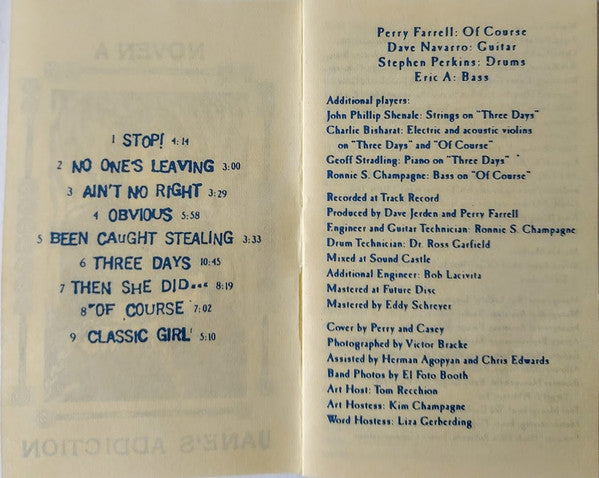 1 STOP! 4:14
2 NO ONE'S LEAVING 3:00
3 AIN'T NO RIGHT 3:29
4 OBVIOUS 5:58
5 BEEN CAUGHT STEALING 3:33
6 THREE DAYS 10:45
7 THEN SHE DID... 8:19
8 "OF COURSE 7:02
9 CLASSIC GIRL 5:10
NOVENA
JANE'S ADDICTION
Perry Farrell: Of Course
Dave Navarro: Guitar
Stephen Perkins: Drums
Eric A: Bass
Additional players:
John Phillip Shenale: Strings on "Three Days"
Charlie Bisharat: Electric and acoustic violins
on "Three Days" and "Of Course"
Geoff Stradling: Piano on "Three Days"
Ronnie S. Champagne: Bass on "Of Course"
Recorded at Track Record
Produced by Dave Jerden and Perry Farrell
Engineer and Guitar Technician: Ronnie S. Champagne
Drum Technician: Dr. Ross Garfield
Mixed at Sound Castle
Additional Engineer: Bob Lacivita
Mastered at Future Disc
Mastered by Eddy Schreyer
Cover by Perry and Casey
Photographed by Victor Bracke
Assisted by Herman Agopyan and Chris Edwards
Band Photos by El Foto Booth
Art Host: Tom Recchion
Art Hostess: Kim Champagne
Word Hostess: Liza Gerberding